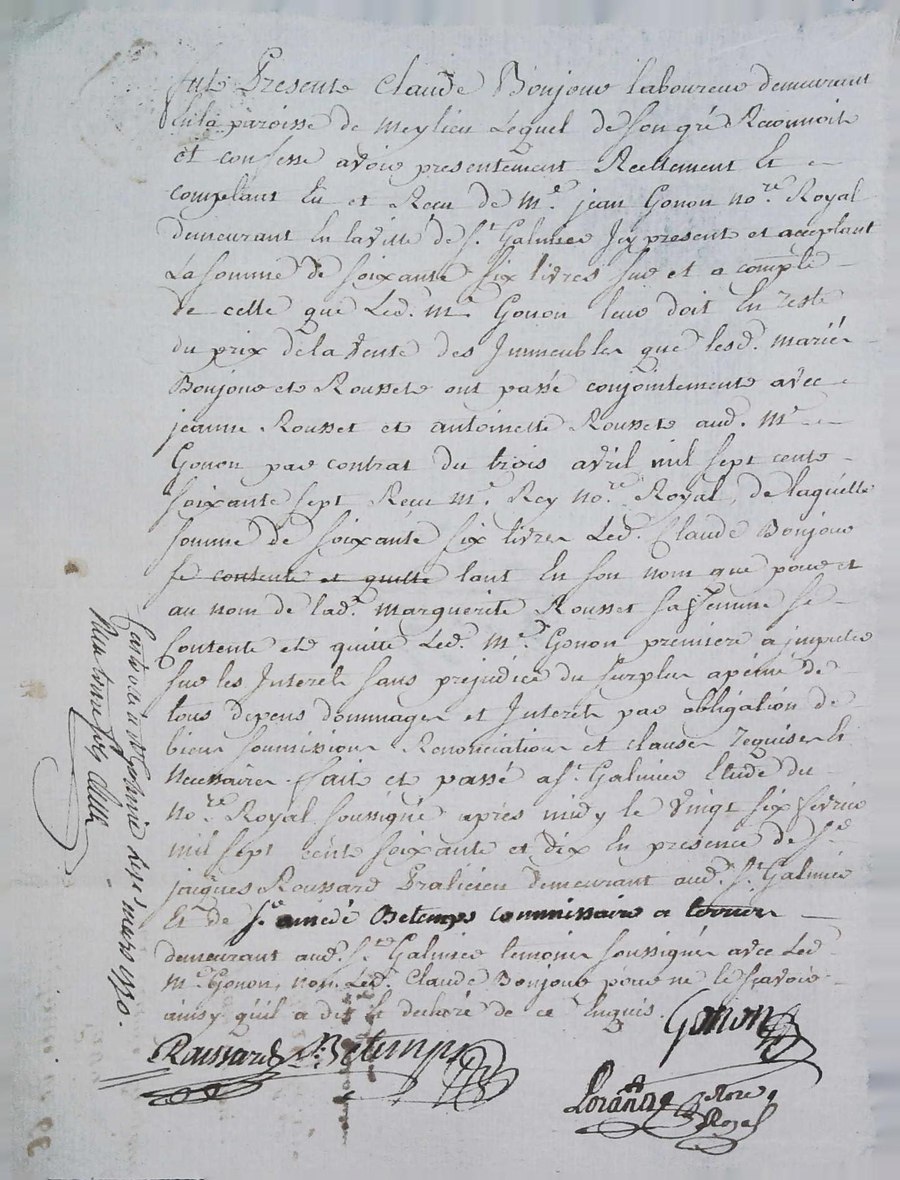 fut Present Claude Bonjour laboureur demeurant
en la paroisse de meylieu Lequel de son gré Reconnoit
et confesse avoir presentement Reellement Et
comptant Eu et Recu de Me. jean Gonon nore. Royal
demeurant En la ville de St Galmier Icy present et acceptant
La somme de soixante six livres sur et a compte
de celle que Led. Me Gonon leur doit En reste
du prix de la vente des Immeubles que lesd. mariés
Bonjour et Rousset ont passé conjointement avec
jeanne Rousset et antoinette Rousset aud. Me
Gonon par contrat du trois avril mil sept cent
soixante sept Recu Me. Rey nore. Royal, de laquelle
somme de soixante six livres Led. Claude Bonjour
se contente et quitte tant En son nom que pour et
au nom de lad. marguerite Rousset sa femme se
Contente et quitte Led. Me Gonon premiere a imputer
sur les Interets sans prejudice du surplus a peine de
tous depens dommages et Interets par obligation de
biens soumissions Renonciations et clauses requises Et
necessaires. fait et passé a St. Galmier Etude du
nore. Royal soussigné après midy le vingt six fevrier
mil sept cent soixante et dix En presence de Sr
jacques Roussard Praticien demeurant aud. St. Galmier
Et de Sr. amedé Betemps commissaire a terrier
demeurant aud. St. Galmier temoins soussignés avec Led
Me Gonon, non Led. Claude Bonjour pour ne le sçavoir
ainsy qu'il a dit et declaré de ce Enquis.
Gonon
Roussard Betemps
nore
Royal
mars 1770.